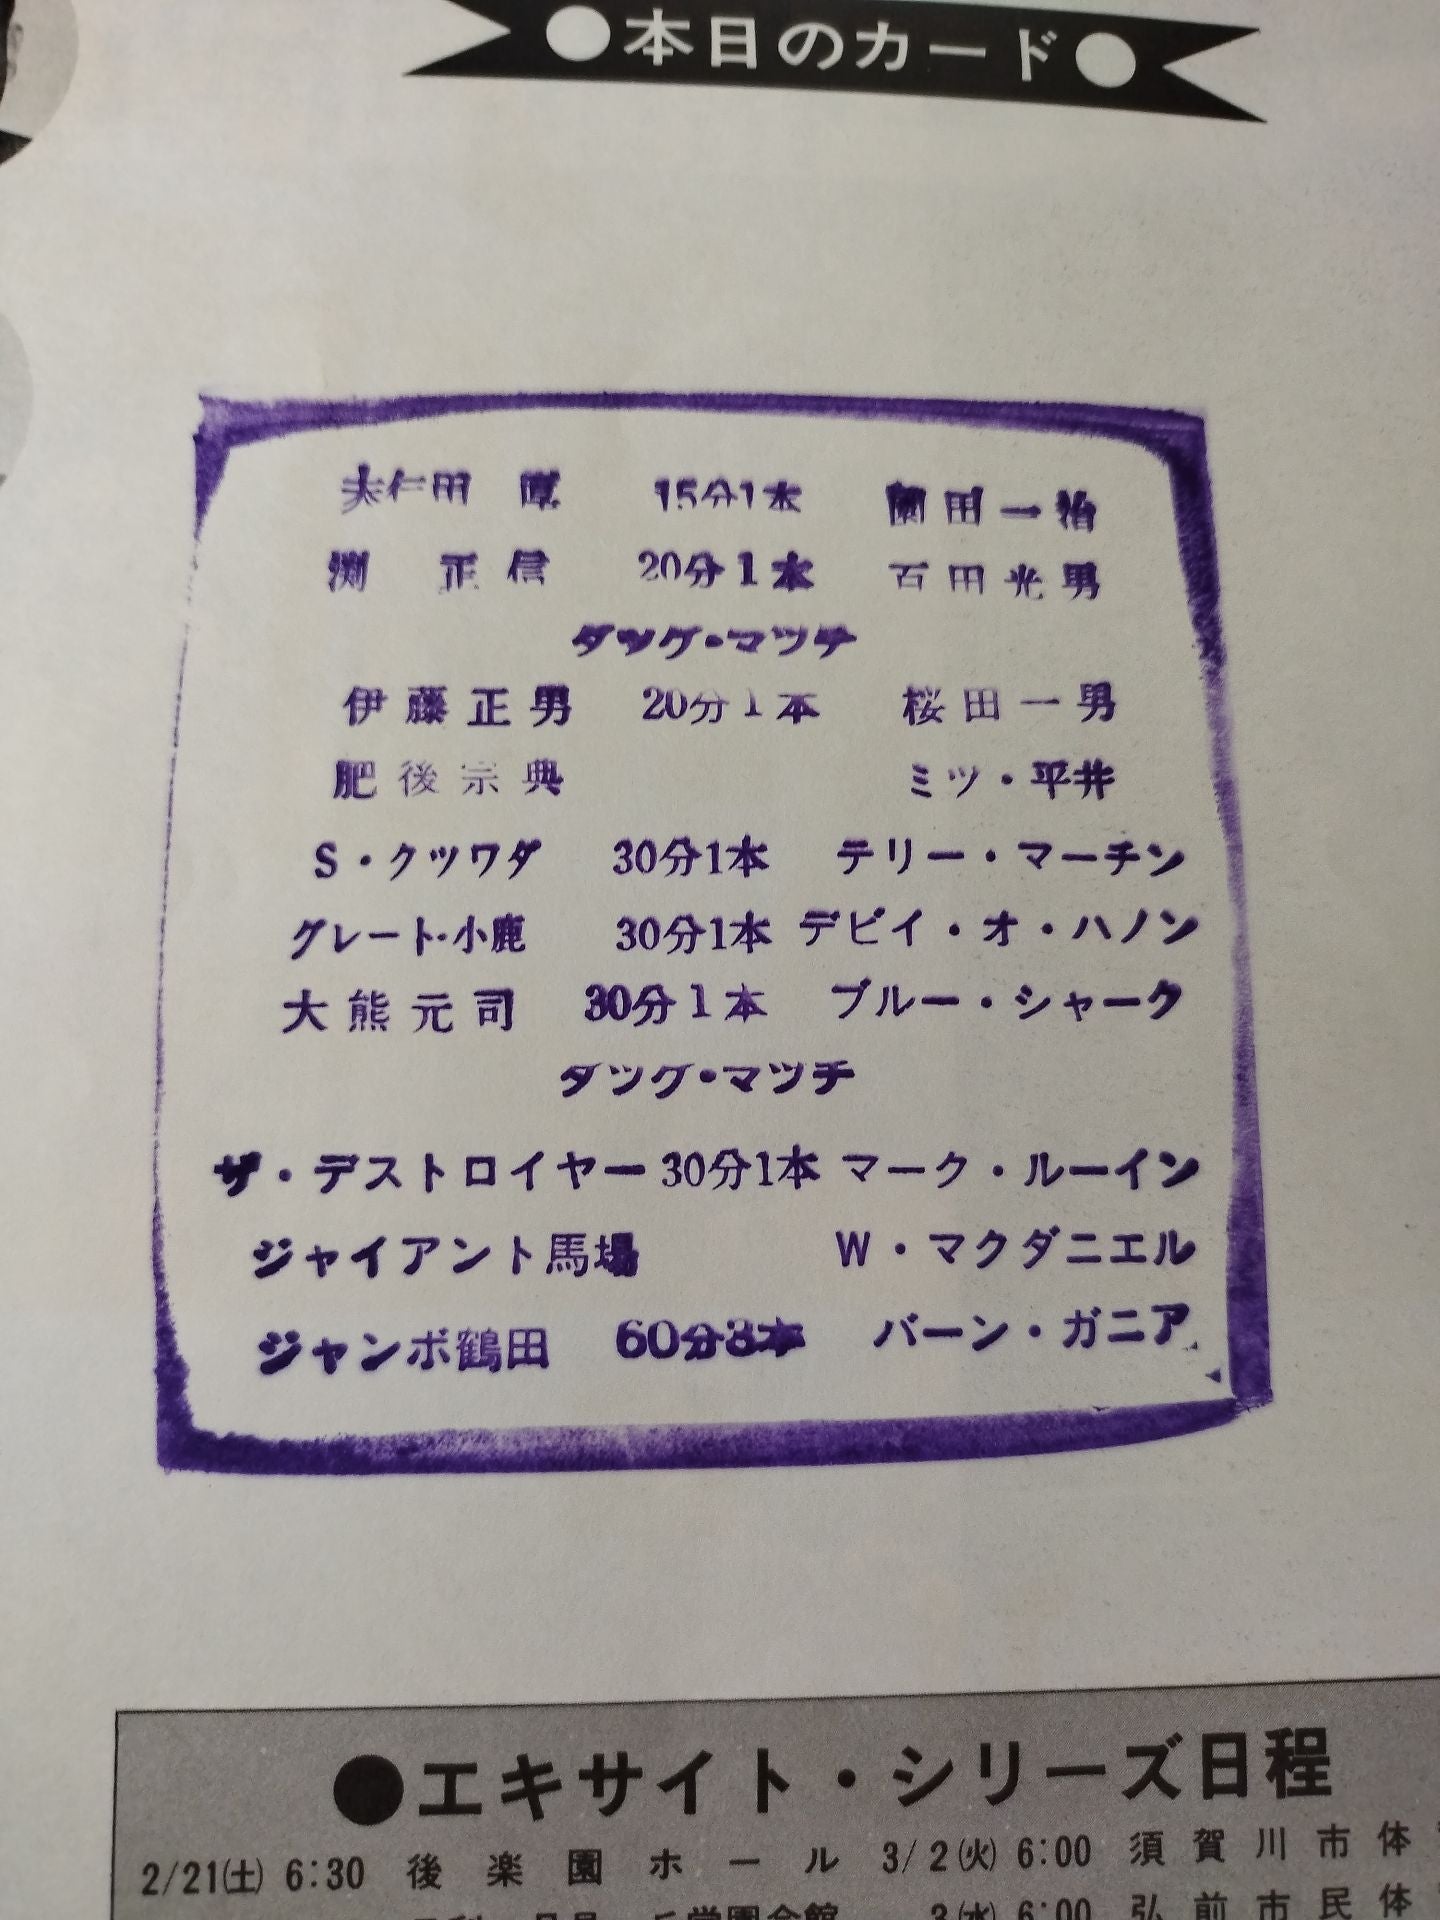 ●本日のカード●
大仁田 厚 15分1本 薗田一治
渕 正信 20分1本 百田光男
タッグ・マッチ
伊藤正男 20分1本 桜田一男
肥後宗典 ミツ・平井
S・クツワダ 30分1本 テリー・マーチン
グレート・小鹿 30分1本 デビイ・オ・ハノン
大熊元司 30分1本 ブルー・シャーク
タッグ・マッチ
ザ・デストロイヤー 30分1本 マーク・ルーイン
ジャイアント馬場 W・マクダニエル
ジャンボ鶴田 60分3本 バーン・ガニア
●エキサイト・シリーズ日程
2/21(土) 6:30 後楽園ホール 3/2(火) 6:00 須賀川市体
学園会館 3(水) 6:00 弘前市民体